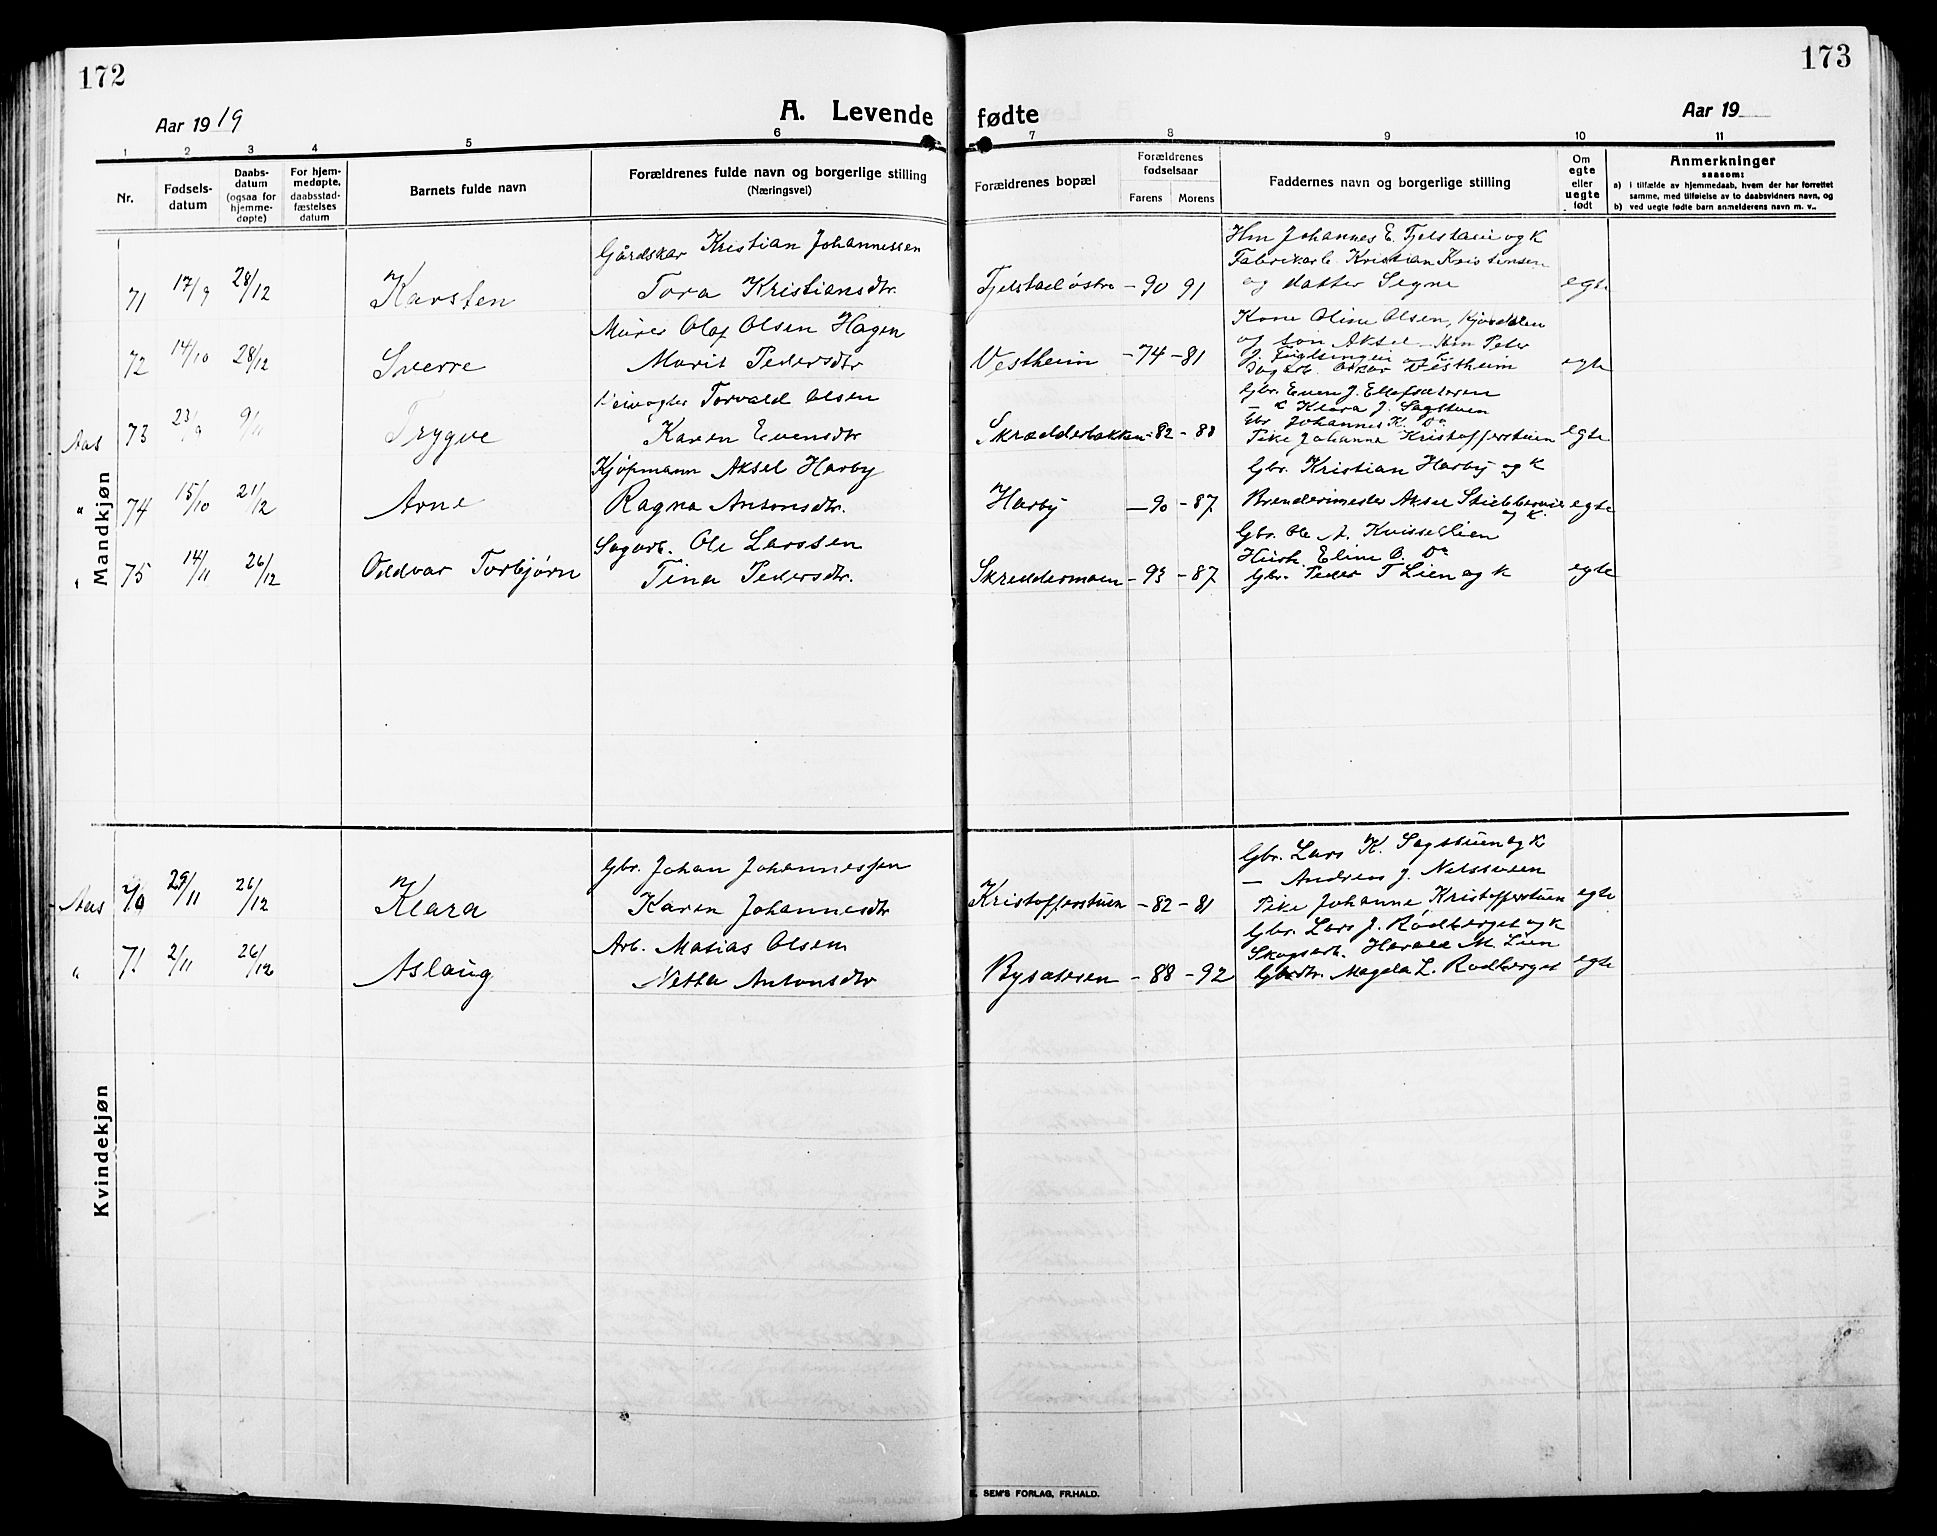 172
173
Aar 1919
A. Levende fødte
Aar 19
1 2 3 4 5 6 7 8 9 10 11
Nr.
Fødsels-
datum
Daabs-
datum
(ogsaa for
hjemme-
døpte)
For hjem-
medøpte,
daabsstad-
fæstelses
datum
Barnets fulde navn
Forældrenes fulde navn og borgerlige stilling
(Næringsvei)
Forældrenes bopæl
Forældrenes
fødselsaar
Farens Morens
Faddernes navn og borgerlige stilling
Om
egte
eller
uegte
født
Anmerkninger
saasom:
a) i tilfælde av hjemmedaab, hvem der har forrettet
samme, med tilføielse av to daabsvidners navn, og
b) ved uegte fødte barn anmelderens navn m. v..
Mandkjøn
Gårdskar Kristian Johannessen
Hm Johannes E. og k
Fabrikarb. Kristian Kristensen
71 17/9 28/12 Karsten Tora Kristiansdtr. østre - 90 91 og datter Signe egte
Murer Olaf Olsen Hagen
Kone Oline Olsen,
og søn Aksel - Hm Peter
72 14/10 28/12 Sverre Marit Pedersdtr Vestheim - 74 - 81 egte
Oskar Vestheim
Torvald Olsen
Gbr. Even J.
- Klara J. Sagstuen
Gbr Johannes K. Do
Aas 73 23/9 9/11 Trygve Karen Evensdtr Skrædderbakken - 82 - 88 Pike Johanne Kristofferstuen egte
Kjøpmann Aksel Harby
Gbr. Kristian Harby og k
" 74 15/10 21/12 Arne Ragna Antonsdtr. Harby - 90 - 87 Aksel egte
og k.
Sagarb. Ole Larssen
Gbr. Ole A.
Eline O. Do
" 75 14/11 26/12 Oddvar Torbjørn Tina Pedersdtr. Skreddermoen - 93 - 87 Gbr. Peder T Lien og k egte
Kvindekjøn
Gbr. Johan Johannessen
Gbr. Lars K. Sagstuen og k
- Andreas J.
Aas 70 29/11 26/12 Klara Karen Johannesdtr Kristofferstuen - 82 - 81 Pike Johanne Kristofferstuen egte
Arb. Matias Olsen
Gbr. Lars J. Rødberget og k
Skogsarb. Harald M. Lien
" 71 2/11 26/12 Aslaug Netta Antonsdtr Bysæteren - 88 - 92 Gbrdtr. Magda L. Rødberget egte
SEM'S FORLAG, FR.HALD.